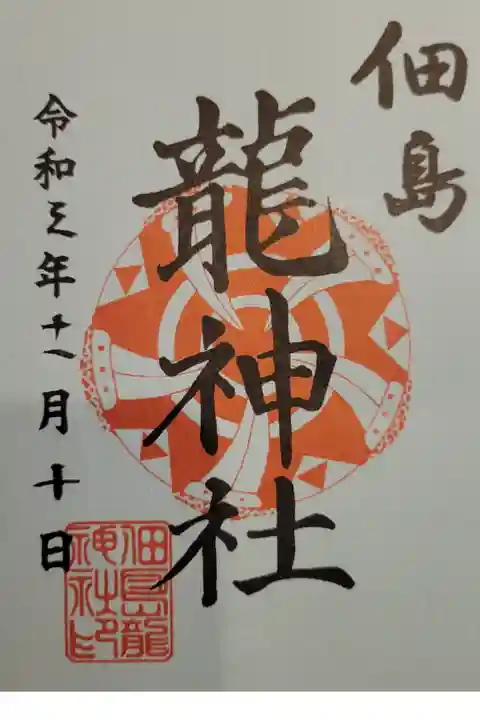 佃島
龍神社
令和元年十一月十日
佃島龍
神社印